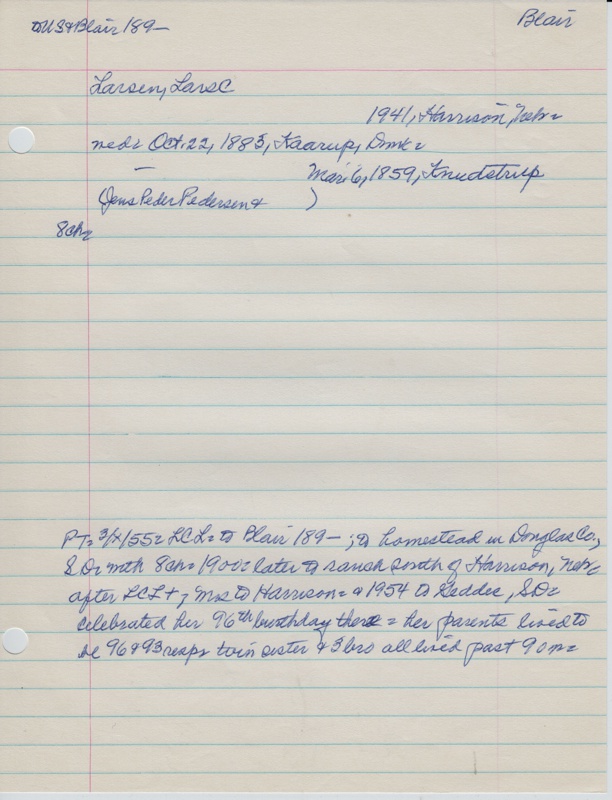 to US & Blair 189— Blair
Larsen, Lars C
1941, Harrison, Neb=
med= Oct. 22, 1883, Kaarup, Dmk=
— Mar. 6, 1859, Knudstrup
(Jens Peder Pedersen & )
8ch=
PT= 3/ /55= LCL= to Blair 189—; to homestead in Douglas Co.,
S.D= with 8ch= 1900= later to ranch south of Harrison, Neb=
after LCL+, Mrs to Harrison= & 1954 to Geddes, S.D=
celebrated her 96th birthday there = her parents lived to
be 96 & 93 resp= twin sister & 3 bro all lived past 90=